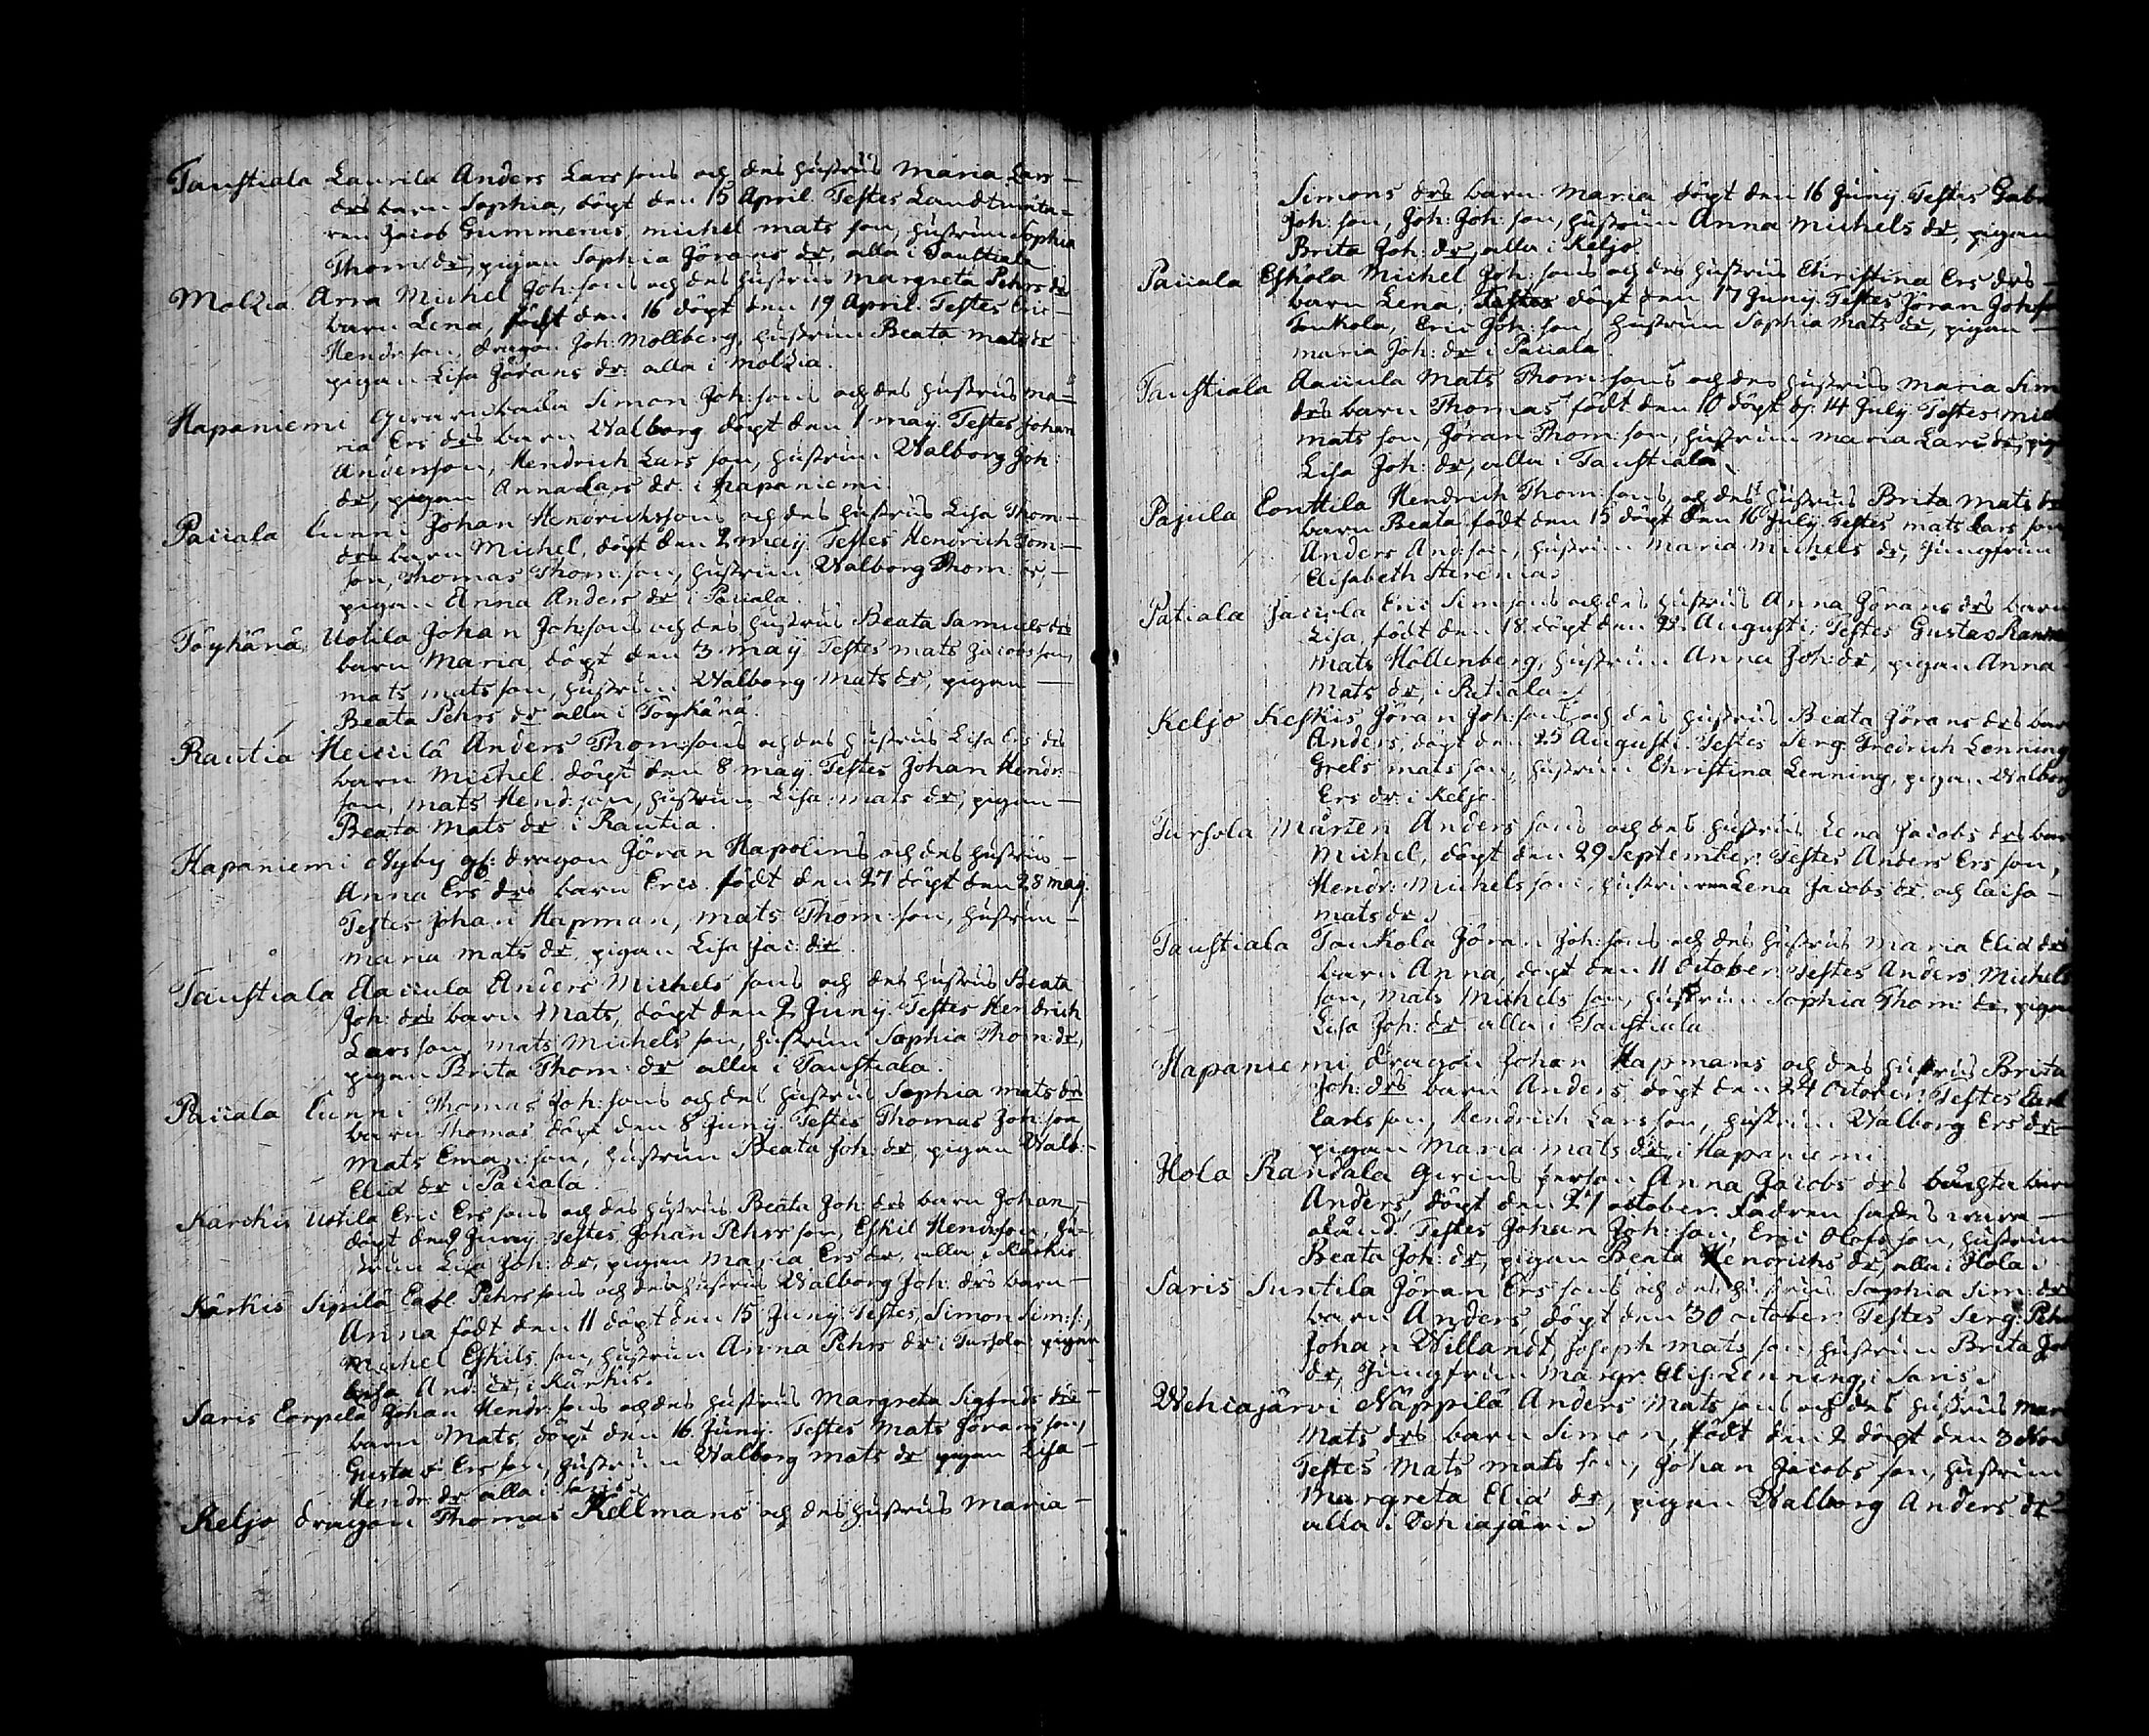 Taustiala Laurila Anders Lars sons och des hustrus Maria Lars
drs barn Sophia, döpt den 15 April. Testes Landtmäta-
ren Jacob Gummerus, michel mats son, hustrun Sophia
Thom: dr, pigan Sophia Jörans dr, alla i Taustiala
Molzia Arra Michel Joh: sons och des hustrus Margreta Pehrs drs
barn Lena, född den 16 döpt den 19 April. Testes Eric
Hendr: son, dragon Joh: Mollberg, hustrun Beata mats dr
pigan Lisa Jörans dr: alla i molzia.
Hapaniemi Simon Joh: sons och des hustrus ma-
ria Ers drs barn Walborg döpt den 1 may. Testes Johan
Andersson, Hendrich Lars son, hustrun Walborg Joh:
dr, pigan Anna Lars dr: i hapaniemi.
Paiiala Cunni Johan Hendrichssons och des hustrus Lisa Thom:
drs barn Michel, döpt den 2 maij. Testes Hendrich Tom:
son, Thomas Thom: son, hustrun Walborg Thom: dr,
pigan Anna Anders dr i Paiiala.
Töykänä Uotila Johan Joh: sons och des hustrus Beata Samuels drs
barn Maria, döpt den 3 maij Testes mats Jacobs son,
mats mats son, hustrun Walborg Mats dr, pigan
Beata Pehrs dr alla i Töykänä.
Rautia Heiiilä Anders Thom: sons och des hustrus Lisa Ers drs
barn Michel. döpt den 8 may. Testes Johan Hendr:
son, mats Hend: son, hustrun Lisa mats dr, pigan
Beata Mats dr i Rautia.
Hapaniemi Nyby gf: dragon Jöran Hapolins och des hustrus
Anna Ers drs barn Eric. född den 27 döpt den 28 maj.
Testes Johan Hapman, mats Thom: son, hustrun
maria mats dr, pigan Lisa Jac: dr
Taustiala Aaiiula Anders Michels sons och des hustrus Beata
Joh: drs barn Mats, döpt den 2 Junÿ. Testes Hendrich
Lars son, mats Michels son, hustrun Sophia Thom: dr,
pigan Brita Thom: dr alla i Taustiala.
Paiiala Cunni Thomas Joh: sons och des hustrus Sophia mats drs
barn Thomas döpt den 8 Junÿ. Testes Thomas Joh: son,
Mats Eman: son, hustrun Beata Joh: dr, pigan Walb:
Eliæ dr i Paiiala.
Karckis Uotila Eric Ers sons och des hustrus Beata Joh: drs barn Johan,
döpt den 9 Juny. Testes Johan Pehrs son, Eskil Hendr: son, hu-
strun Lisa Joh: dr, pigan Maria Ers dr, alla i Kärkis
Kärkis Sipilä Carl Pehrs sons och des hustrus Walborg Joh: drs barn
Anna född den 11 döpt den 15 Juny. Testes, Simon Sim: s:,
Michel Eskils son, hustrun Anna Pehrs dr i Tursola pigan
And: dr, i Kärkis.
Saris Eorpela Johan Hendr: sons och des hustrus Margreta Sigfrids drs
barn Mats, döpt den 16 Junÿ. Testes Mats Jörans son,
Gustav Ers son, hustrun Walborg mats dr pigan Lisa
Hendr: dr alla i Saris.
Keljo dragon Thomas Kellmans och des hustrus Maria
Simons drs barn Maria döpt den 16 Juny. Testes Gabr
Joh: son, Joh: Joh: son, hustrun Anna Michels dr, pigan
Brita Joh: dr, alla i Keljo.
Paiiala Eskola Michel Joh: sons och des hustrus Christina Ers drs
barn Lena, döpt den 17 Juny. Testes Jöran Joh: so
Toukola, Eric Joh: son, hustrun Sophia Mats dr, pigan
maria Joh: dr i Paiiala
Taustiala Aaiiula Mats Thom: sons och des hustrus Maria Sim
drs barn Thomas född den 10 döpt d: 14 July Testes mic
mats son, Jöran Thom: son, hustrun maria Lars dr, pig
Lisa Joh: dr, alla i Taustiala.
Pajula Conttila Hendrich Thom: sons, och des hustrus Brita mats dr
barn Beata född den 15 döpt den 16 July. Testes mats Lars son
Anders And: son, hustrun Maria Michels dr, Jungfrun
Elisabeth Sterenia.
Patiala Jaiiola Eric Sim sons och des hustrus Anna Jörans drs barn
Lisa, född den 18 döpt den Augusti, Testes Gustav
Mats Höllenberg, hustrun Anna Joh: dr, pigan Anna
Mats dr, i Patiala.
Keljo Keskis Jöran Joh: sons och des hustrus Beata Jörans drs bar
Anders, döpt den 25 Augusti. Testes Serg: Fredrich Lenning
Grels mats son, hustrun Christina Lenning, pigan Walborg
Ers dr: i Keljo.
Tursola Mårten Anders sons och des hustrus Lena Jacobs drs bar
Michel, döpt den 29 September. Testes Anders Ers son,
Hendr: Michels son, hustrun Lena Jacobs dr. och Caisa
mats dr.
Taustiala Toukola Jöran Joh: sons och des hustrus Maria Eliæ drs
barn Anna, döpt den 11 October. Testes Anders Michels
son, mats Michels son, hustrun Sophia Thom: dr, pigan
Lisa Joh: dr alla i Taustiala
Hapaniemi dragon Johan Hapmans och des hustrus Brita
Joh: drs barn Anders, döpt den 24 October. Testes Carl
Carls son, Hendrich Lars son, hustrun Walborg Ers dr
pigan Maria mats dr, i Hapaniemi.
Hola Randala person Anna Jacobs drs barn
Anders, döpt den 27 october. Fadren sades vara
okänd. Testes Johan Joh: son, Eric Olofs son, hustrun
Beata Joh: dr, pigan Beata Hendrichs dr, alla i Hola.
Saris Suntila Jöran Ers sons och des hustrus Sophia Sim: drs
barn Anders, döpt den 30 october. Testes Serg: Peh
Johan Willandt, Joseph mats son, hustrun Brita Joh
dr, Jungfrun Margr: Elis: Lenning, i Saris.
Wehiajärvi Näppilä Anders Mats sons och des hustrus Mar
Mats drs barn Simon, född den 2 döpt den 3 Nov
Testes Mats mats son, Johan Jacobs son, hustrun
Margreta Eliæ dr, pigan Walborg Anders dr
alla i Vehiajärvi.